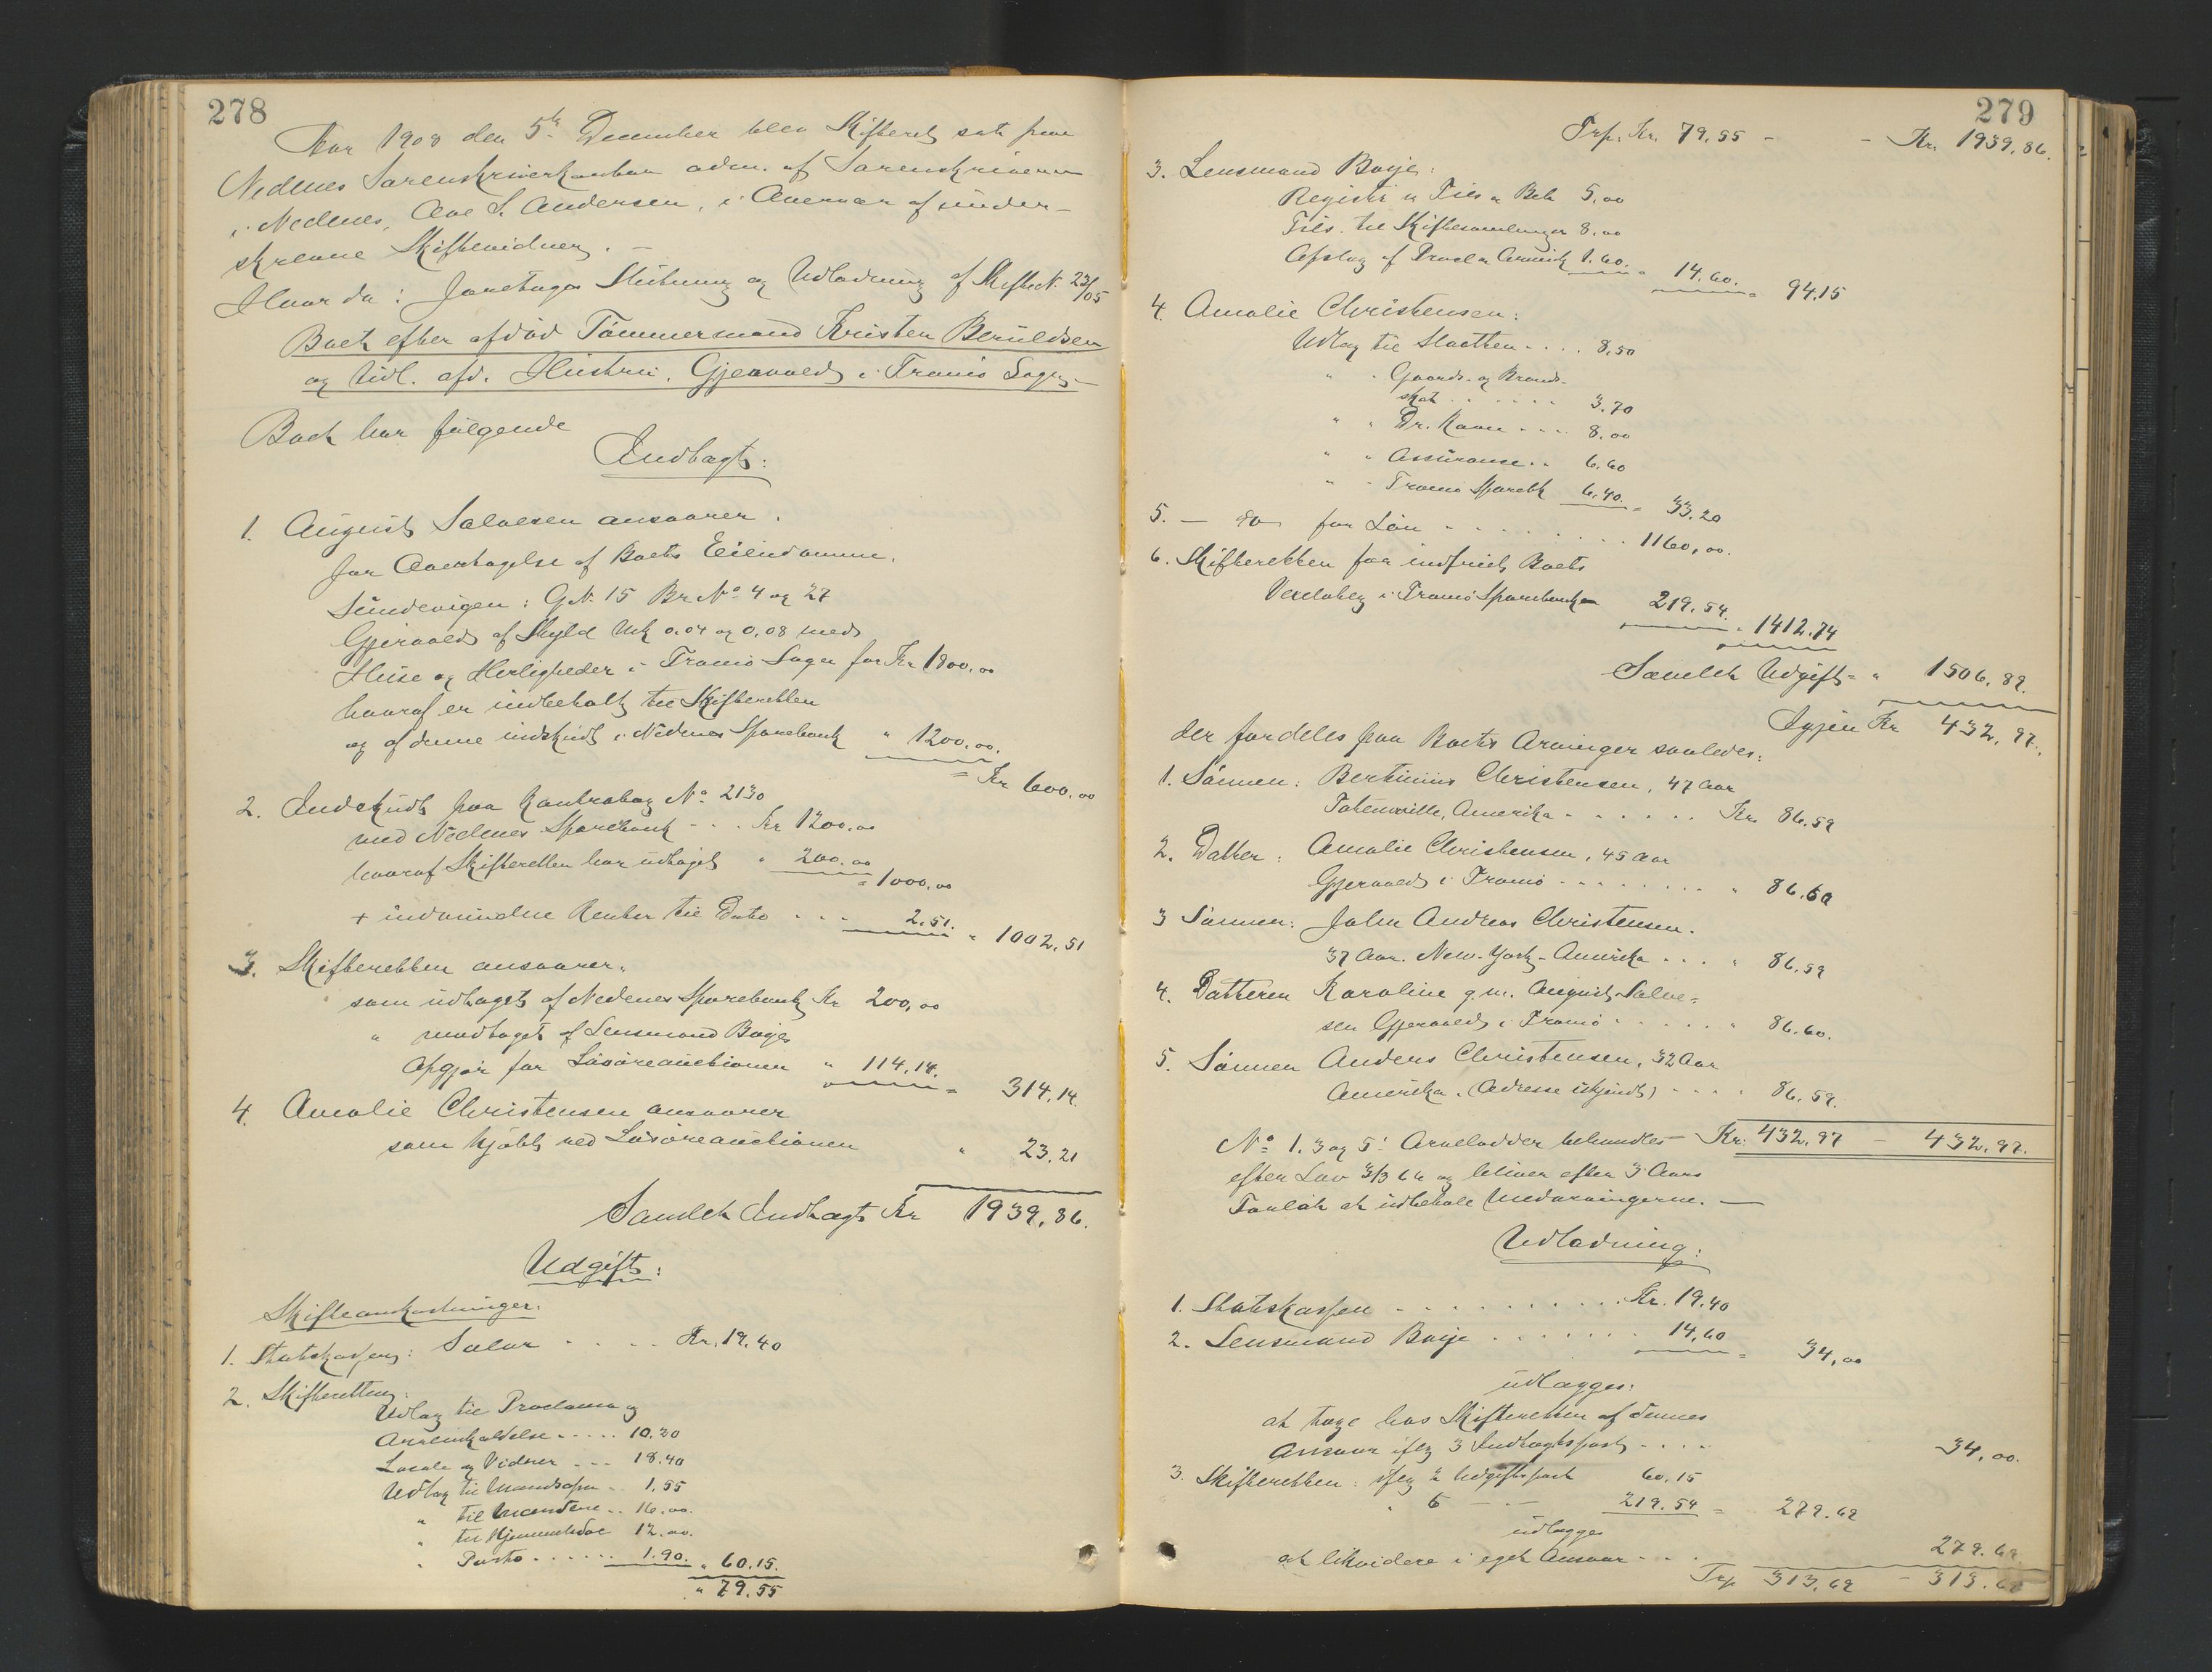 278
Aar 1908 den 5te December blev Skifteret sat paa
Nedenes Sorenskriverkontor adm. af Sorenskriveren
i Nedenes, Ove S. Andersen, i Overvær af under-
skrevne Skiftevidner. —
Hvorda: Foretages Slutning og Udlodning af Skifte N. 23/05
Boet efter afdød Tømmermand Kristen Beruldsen
og tidl. afd. Hustru, Gjervold i Tromø Sogn. —
Boet har følgende
Indtægt:
1. August Salvesen ansvarer.
for Overtagelse af Boets Eiendomme.
Sundevigen: G.N. 15 Br No. 4 og 27
Gjervold af Skyld Mk 0.04 og 0.08 med
Huse og Herligheder i Tromø Sogn for Kr 1800.00
hvoraf er indbetalt til Skifteretten
og af denne indskudt i Nedenes Sparebank " 1200.00.
= Kr 600.00
2. Indskudt paa Kontrabog No. 2130
med Nedenes Sparebank - . . Kr 1200.00
hvoraf Skifteretten har udtaget " 200.00
= 1000.00
+ indvundne Renter til Dato . . . 2.51. " 1002.51
3. Skifteretten ansvarer.
som udtaget af Nedenes Sparebank Kr 200,00
" modtaget af Lensmand Boije
Opgjør for Løsøreauctionen " 114.14. = 314.14
4. Amalie Christensen ansvarer
som kjøbt ved Løsøreauctionen " 23.21
Samlet Indtægt Kr 1939.86.
Udgift:
Skifteomkostninger.
1. Statskassen: Salær . . . . Kr. 19.40
2. Skifteretten:
Udlæg til Proclama og
Arveindkaldelse . . . . . 10.30
Locale og Vidner . . . 18.40
Udlæg til . 1.55
" til . . 16.00.
" til Hjemmelsdoc 12.00.
" Porto . . . . . . 1.90. " 60.15.
" 79.55
279
Trp. Kr. 79.55 - - Kr. 1939.86.
3. Lensmand Boije:
Registr. u Tils u Bek 5.00
Tils. til Skiftesamlinger 8.00
Opslag af Procla 1.60. = 14.60. = 94.15
4. Amalie Christensen:
Udlæg til Skatten . . . . 8.50
" " Gaards- og Brand-
skat . . . . . . 3.70
" " Dr. Ravn . . . 8.00
" " Assurance . . 6.60
" " Tromø Sparebk 6.40. = 33.20
5. — do — for Løn . . . . . . . . 1160,00.
6. Skifteretten for indfriet Boets
Vexelobleg i Tromø Sparebank 219.54. = 1412.74
Samlet Udgift = " 1506.89.
Igjen Kr 432.97.
der fordeles paa Boets Arvinger saaledes:
1. Sønnen: Bertinius Christensen, 47 Aar
Totenville, Amerika . . . . . . Kr. 86.59
2. Datter: Amalie Christensen, 45 Aar
Gjervold i Tromø . . . . . . . . " 86.60
3 Sønnen: John Andreas Christensen.
37 Aar. New-York - Amerika . . . " 86.59
4. Datteren Karoline g.m. August Salve-
sen Gjervold i Tromø . . . . . " 86.60.
5. Sønnen Anders Christensen, 32 Aar
Amerika. (Adresse ukjendt) . . . . 86.59.
No. 1. 3 og 5: Arvelodder behandles Kr. 432.97 — 432.97.
efter Lov 3/3 66 og bliver efter 3 Aars
Forløb at udbetale Medarvingerne. —
Udlodning:
1. Statskassen . . . . . . . . . . Kr. 19.40
2. Lensmand Boije . . . . . . . 14.60 = 34,00
udlægges:
at tage hos Skifteretten af dennes
Ansvar iflg 3 Indtægtspost . . . . 34,00.
3. Skifteretten: iflg 2 Udgiftspost 60.15
" 6 — — 219.54 = 279.69
udlægges
at likvidere i eget Ansvar . . . 279.69
Trp 313.69 — 313.69